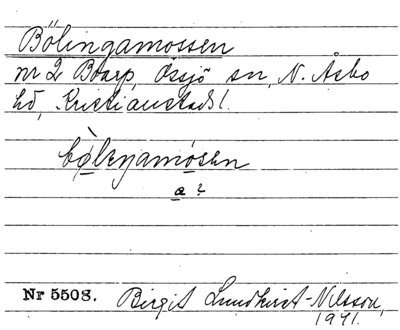 Bölingamossen
nr 2 Boarp, Össjö sn, N. Åsbo
hd, Kristianstads l.
bø̀leŋamosen
a ?
Nr 5508. Birgit Lundkvist-Nilsson,
1941.